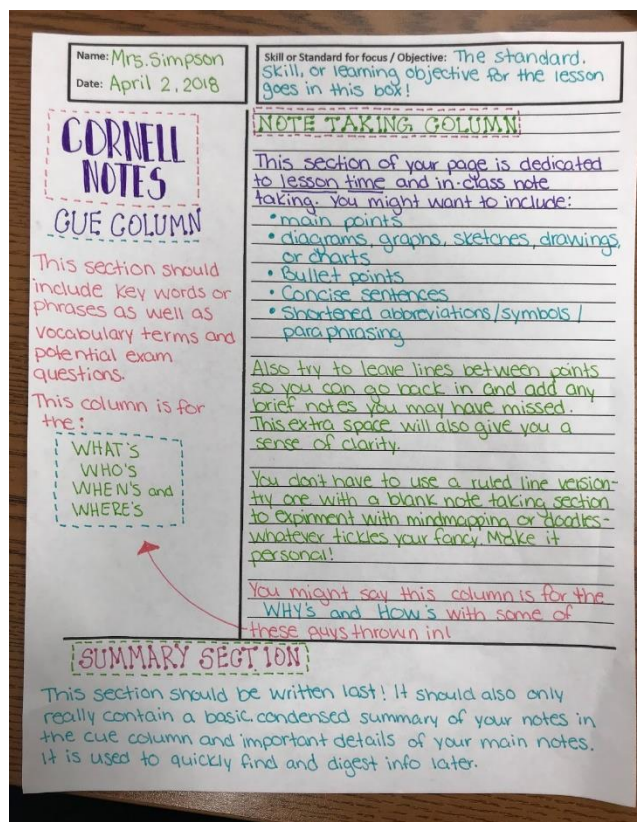 Name: Mrs. Simpson
Date: April 2, 2018
Skill or Standard for focus / Objective: The standard.
skill, or learning objective for the lesson
goes in this box!
CORNELL
NOTES
CUE COLUMN
This section should
include key words or
phrases as well as
vocabulary terms and
potential exam
questions.
This column is for
the:
WHAT'S
WHO'S
WHEN'S and
WHERE'S
NOTE TAKING COLUMN
This section of your page is dedicated
to lesson time and in-class note
taking. You might want to include:
• main points
• diagrams, graphs, sketches, drawings,
or charts
• Bullet points
• Concise sentences
• Shortened abbreviations/symbols/
paraphrasing
Also try to leave lines between points
so you can go back in and add any
brief notes you may have missed.
This extra space will also give you a
sense of clarity.
You dont have to use a ruled line version-
try one with a blank note taking section
to expirment with mindmapping or doodles-
whatever tickles your fancy. Make it
personal!
You might say this column is for the
WHY's and HOW's with some of
these guys thrown in!
SUMMARY SECTION
This section should be written last! It should also only
really contain a basic, condensed summary of your notes in
the cue column and important details of your main notes.
It is used to quickly find and digest info later.